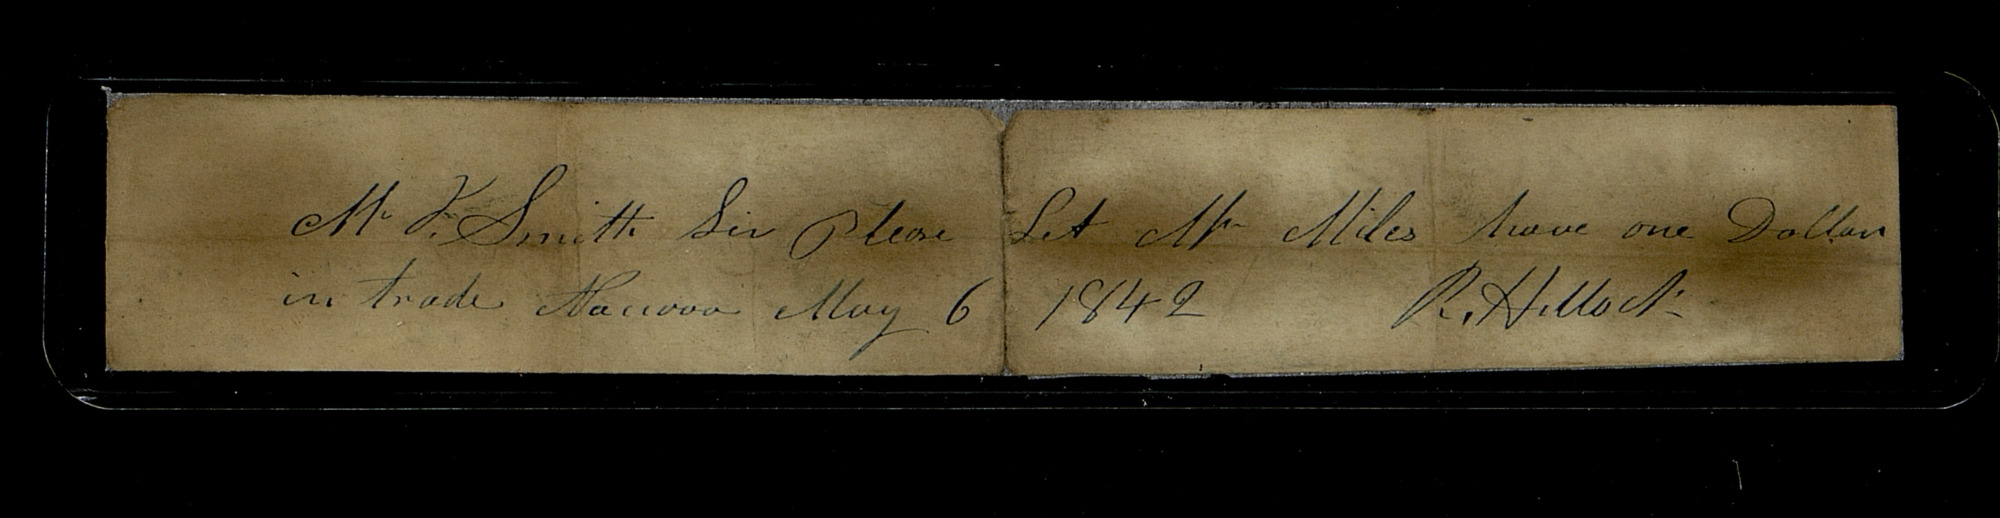 Mr Smith Sir Please Let Mr Miles have one Dollar
in trade Nauvoo May 6 1842 R.